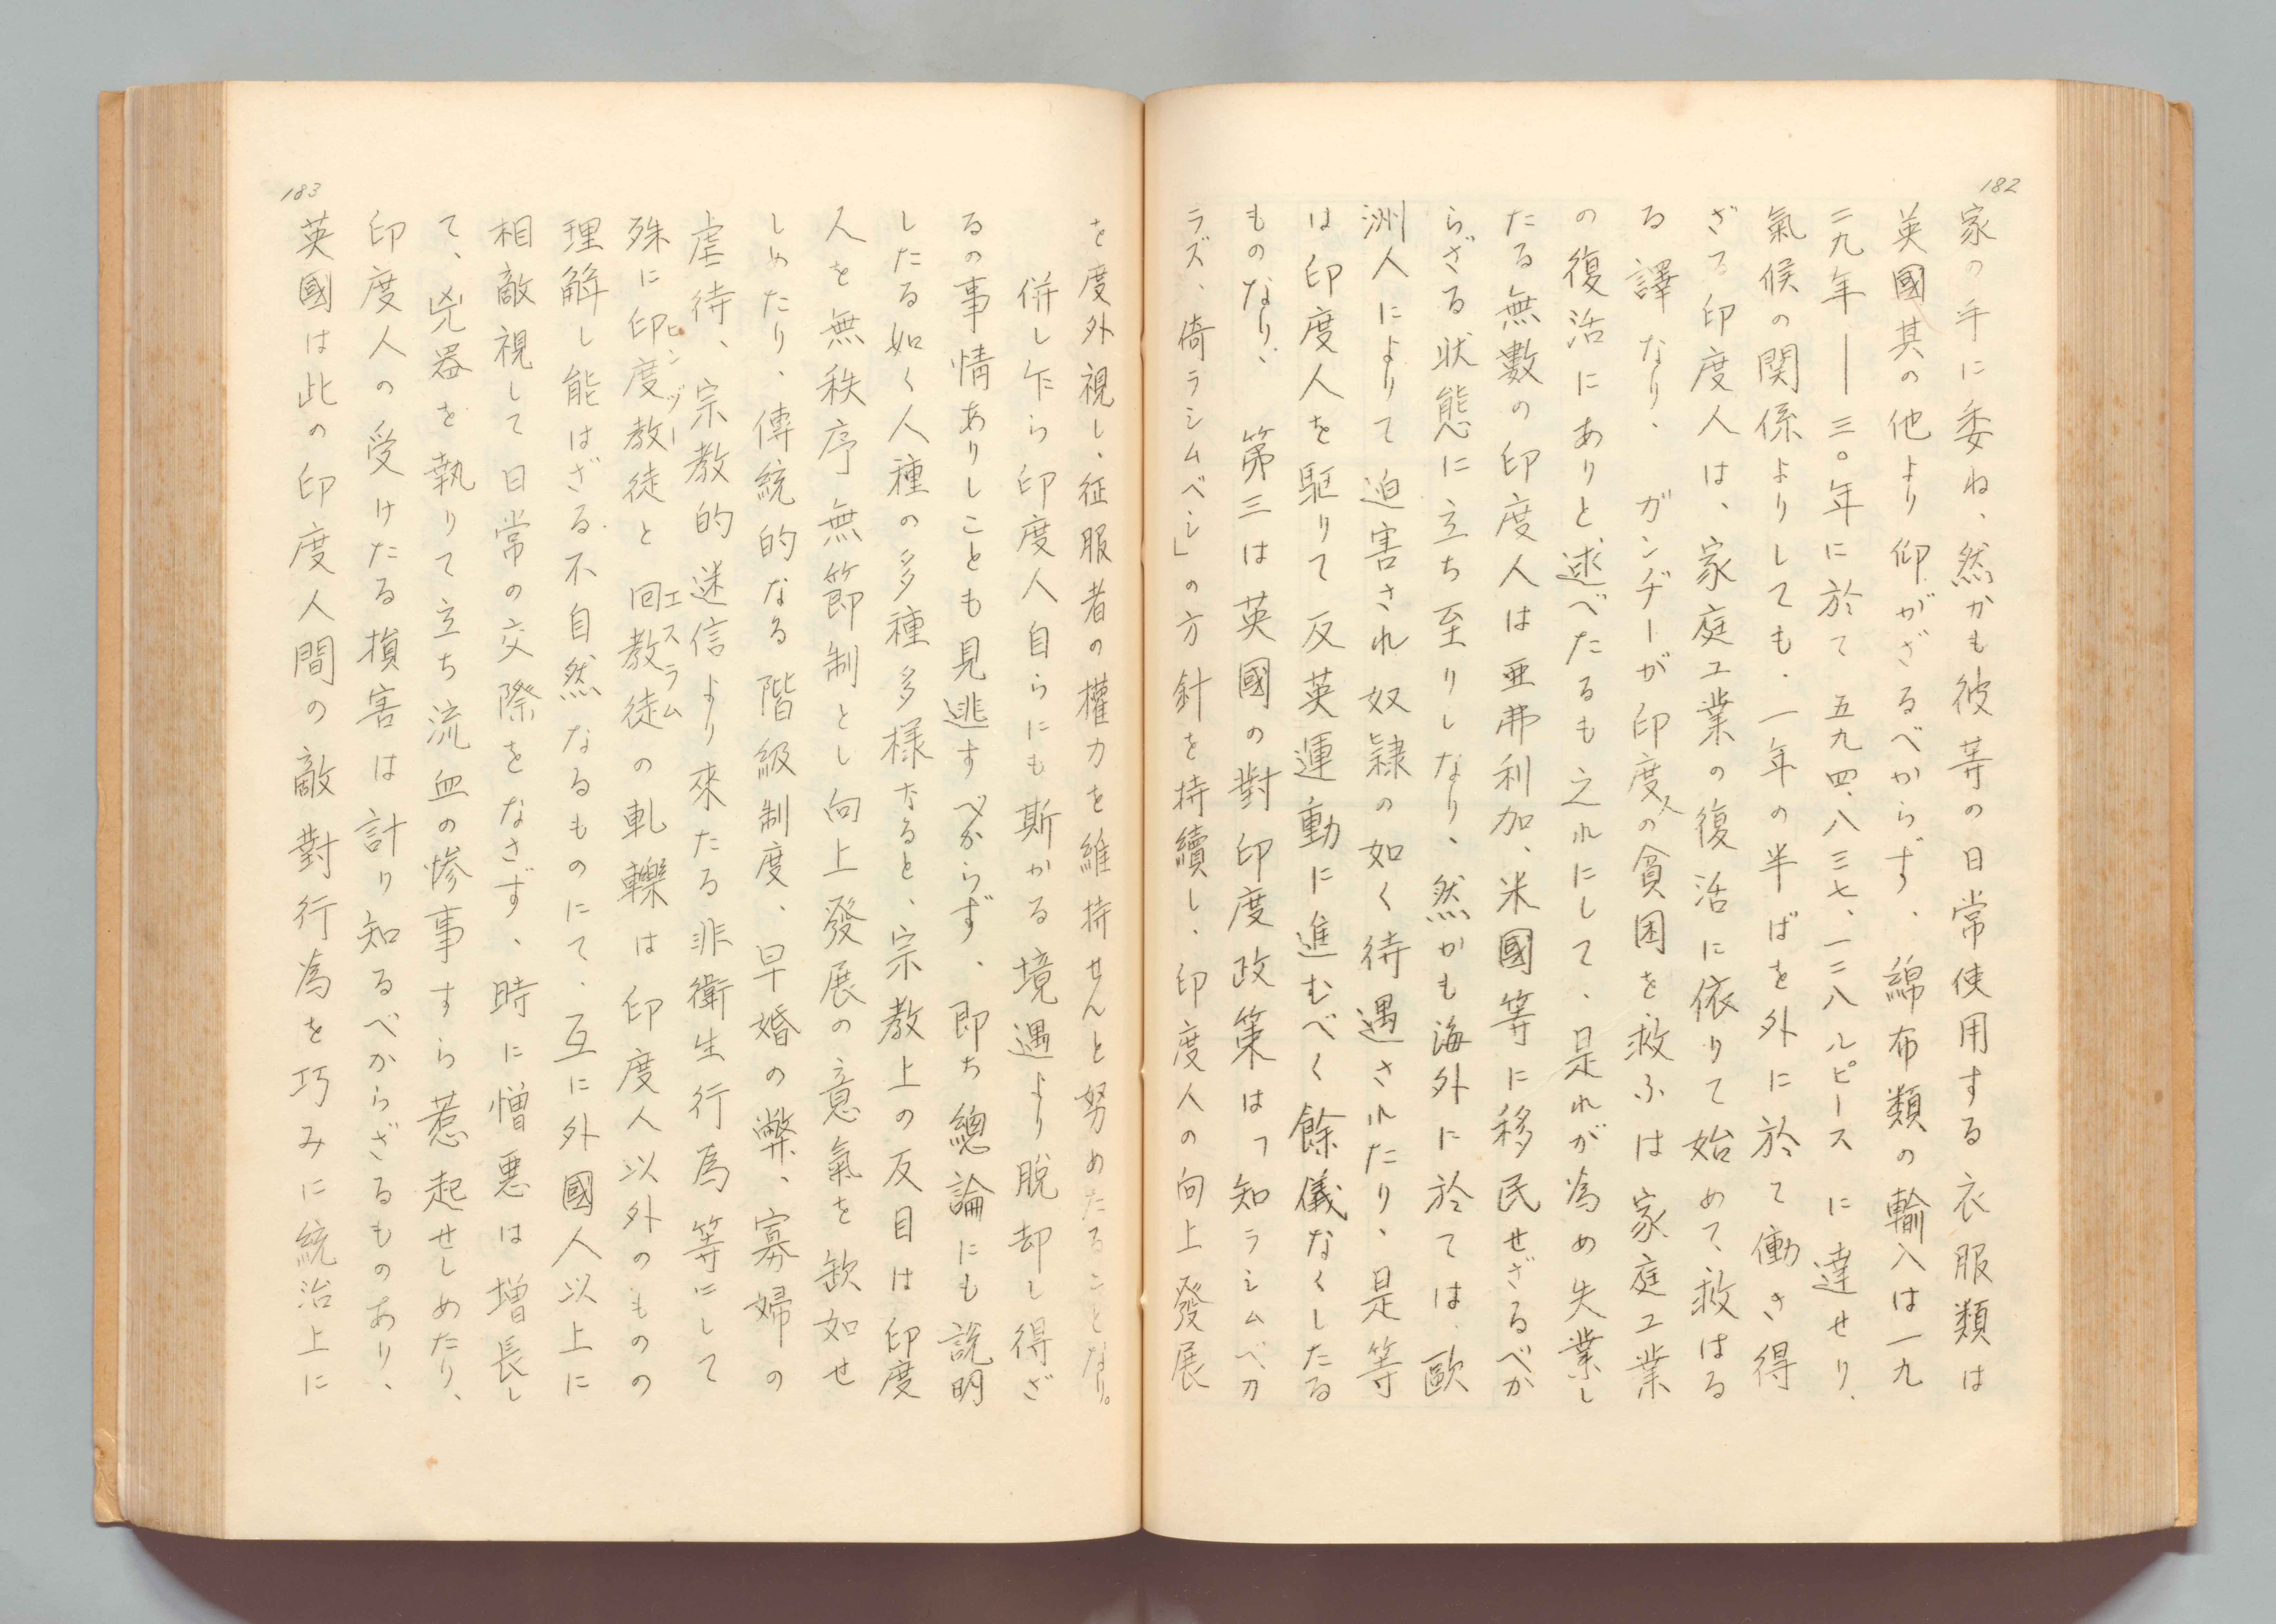 182
家の手に委ね、然かも彼等の日常使用する衣服類は
英國其の他より仰がざるべからず、綿布類の輸入は一九
二九年──三〇年に於て五九四、八三七、一二八ルピースに達せり、
氣候の関係よりしても、一年の半ばを外に於て働き得
ざる印度人は、家庭工業の復活に依りて始めて、救はる
る譯なり、ガンヂーが印度人の貧困を救ふは家庭工業
の復活にありと述べたるも之れにして、是れが為め失業し
たる無數の印度人は亜弗利加、米國等に移民せざるべか
らざる状態に立ち至りしなり、然かも海外に於ては、歐
洲人によりて迫害され奴隷の如く待遇されたり、是等
は印度人を駆りて反英運動に進むべく餘儀なくしたる
ものなり、第三は英國の對印度政策は「知ラシムベカ
ラズ、倚ラシムベシ」の方針を持續し、印度人の向上發展
を度外視し、征服者の權力を維持せんと努めたることなり。
併し乍ら印度人自らにも斯かる境遇より脱却し得ざ
るの事情ありしことも見逃すべからず、即ち總論にも説明
したる如く人種の多種多様なると、宗教上の反目は印度
人を無秩序無節制とし向上發展の意氣を欽如せ
しめたり、傳統的なる階級制度、早婚の弊、寡婦の
虐待、宗教的迷信より來たる非衛生行爲等にして
殊に印度教徒と回教徒の軋轢は印度人以外のものの
ヒンヅー
エスラム
理解し能はざる不自然なるものにて、互に外國人以上に
相敵視して日常の交際をなさず、時に憎悪は増長し
て、兇器を執りて立ち流血の惨事すら惹起せしめたり、
印度人の受けたる損害は計り知るべからざるものあり、
英國は此の印度人間の敵對行為を巧みに統治上に
183